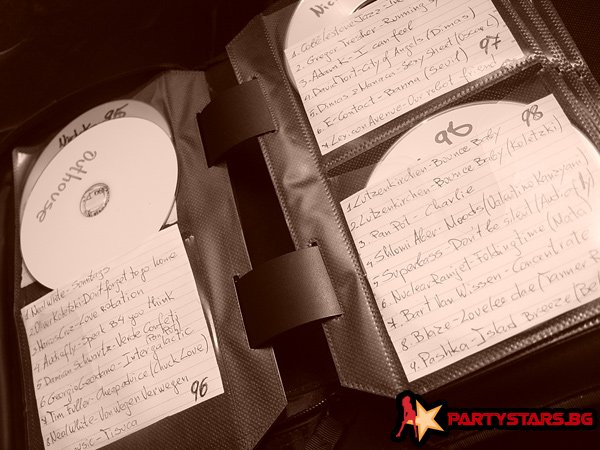 Nick 95
Outhouse
1. Neal White - Sonntags
2. Oliver Koletzki Don't forget to go home
3. Marcus - Love rotation
4. Audiofly - Speak B4 you think
5. Damian Schwartz - Verde Confeti
6. Georgio Giordano - Intergalactic
7. Tim Fuller - Cheap advice (Chuck Love)
8. Neal White - Vorwegen Verwegen
- Tisuca
96
Nic
2. Gregor Tresher - Running
3. Adam K - I can feel
4. David Mort - City of Angels (Dimas)
5. Dimas & Monaco - Sexy Shed (Oscar L)
6. E-Contact - Barma (Seul)
7. Lexicon Avenue - Our robot friend
97
96
98
1. Lutzenkirchen - Bounce Baby
2. Lutzenkirchen - Bounce Baby (Koletzki)
3. Pan Pot - Charlie
4. Shlomi Aber - Moods (Valentino Kanzyani)
5. Superbass Don't be silent (Audiofly)
6. Nuclear Ramjet Foldingtime
7. Bart Van Wissen - Concentrate
8. Blaze - Lovelee dae
9. Pashka - Island Breeze
PARTYSTARS.BG